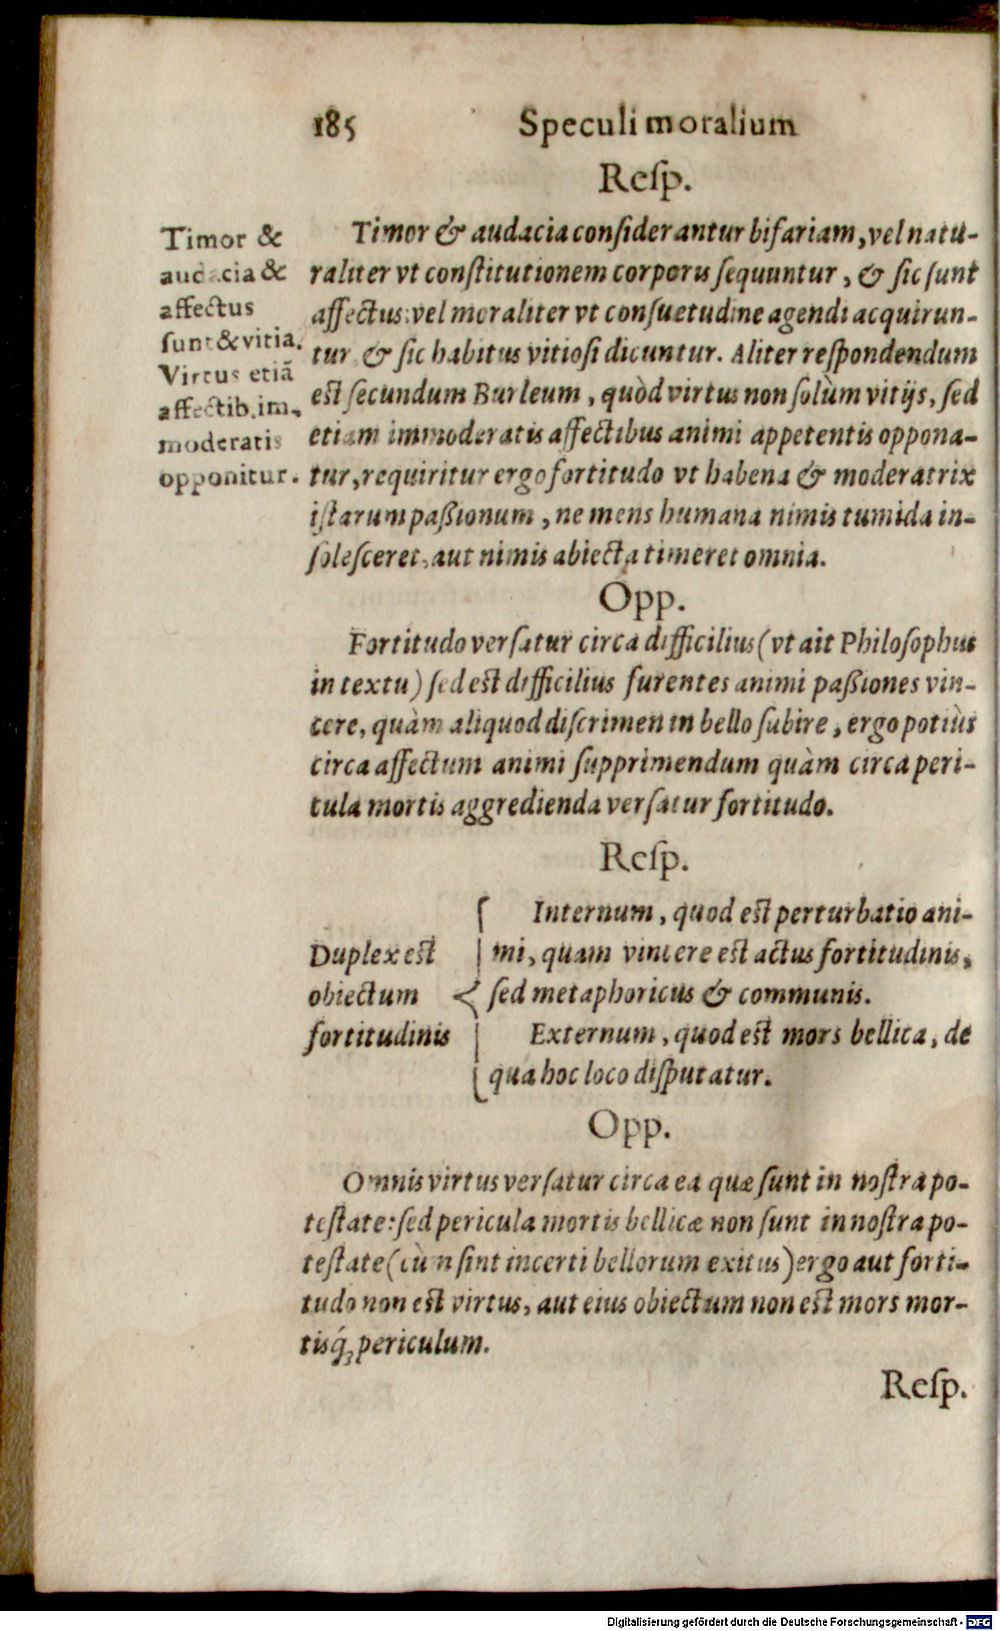 185 Speculi moralium
Reſp.
Timor &
audacia &
affectus
ſunt & vitia.
Virtus etiã
affectib. im-
moderatis
opponitur.
Timor & audacia conſiderantur bifariam, vel natu-
raliter vt conſtitutionem corporis ſequuntur, & ſic ſunt
affectus: vel moraliter vt conſuetudine agendi acquirun-
tur & ſic habitus vitioſi dicuntur. Aliter reſpondendum
est ſecundum Burleum, quòd virtus non ſolùm vitijs, ſed
etiam immoderatis affectibus animi appetentis oppona-
tur, requiritur ergo fortitudo vt habena & moderatrix
iſtarum paßionum, ne mens humana nimis tumida in-
ſoleſceret, aut nimis abiecta timeret omnia.
Opp.
Fortitudo verſatur circa difficilius (vt ait Philoſophus
in textu) ſed est difficilius furentes animi paßiones vin-
cere, quàm aliquod diſcrimen in bello ſubire, ergo potiùs
circa affectum animi ſupprimendum quàm circa peri-
cula mortis aggredienda verſatur fortitudo.
Reſp.
Duplex est
obiectum
fortitudinis
Internum, quod est perturbatio ani-
mi, quam vincere est actus fortitudinis,
ſed metaphoricus & communis.
Externum, quod est mors bellica, de
qua hoc loco diſputatur.
Opp.
Omnis virtus verſatur circa ea quæ ſunt in noſtra po-
teſtate: ſed pericula mortis bellicæ non ſunt in noſtra po-
teſtate (cùm ſint incerti bellorum exitus) ergo aut forti-
tudo non est virtus, aut eius obiectum non est mors mor-
tisq́ꝫ periculum.
Reſp.
Digitalisierung gefördert durch die Deutsche Forschungsgemeinschaft - DFG